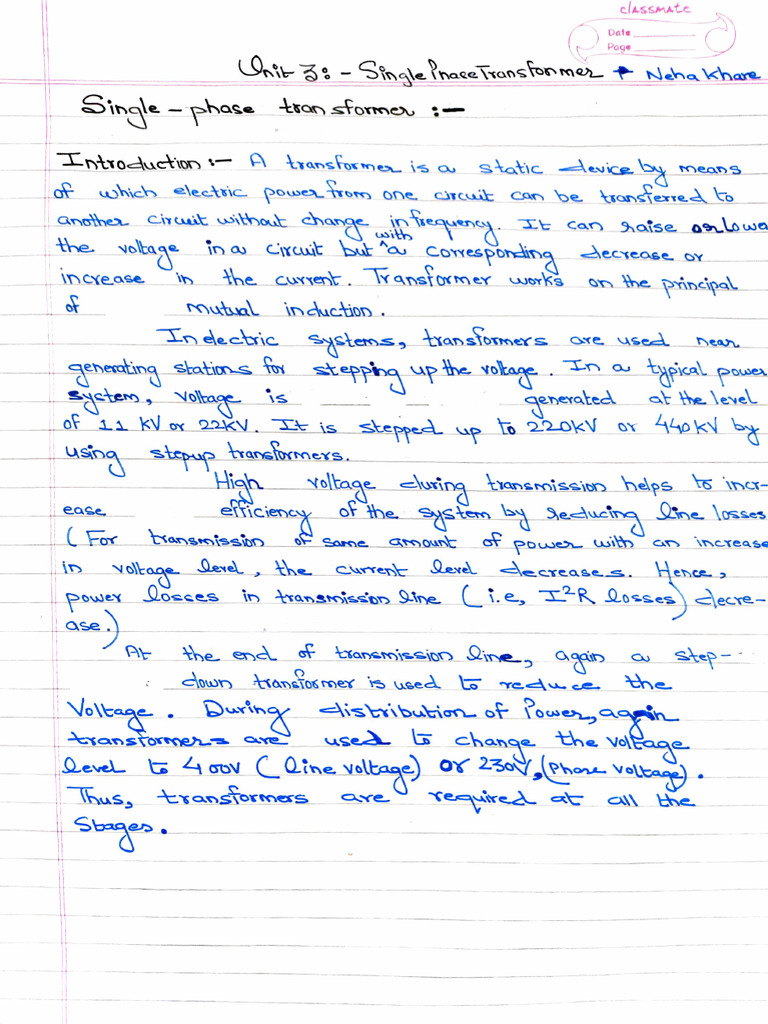 classmate
Date
Page
Unit 3:- Single Phase Transformer Neha Khare
Single-phase transformer :-
Introduction :- A transformer is a static device by means
of which electric power from one circuit can be transferred to
another circuit without change in frequency. It can raise or lower
the voltage in a circuit but with a corresponding decrease or
increase in the current. Transformer works on the principal
of mutual induction.
In electric systems, transformers are used near
generating stations for stepping up the voltage. In a typical power
system, voltage is generated at the level
of 11 kV or 22kV. It is stepped up to 220kV or 440kV by
using stepup transformers.
High voltage during transmission helps to incr-
ease efficiency of the system by reducing line losses
(For transmission of same amount of power with an increase
in voltage level, the current level decreases. Hence,
power losses in transmission line (i.e, I²R losses) decre-
ase.)
At the end of transmission line, again a step-
down transformer is used to reduce the
Voltage. During distribution of Power, again
transformers are used to change the voltage
level to 400V (line voltage) or 230V, (Phase voltage).
Thus, transformers are required at all the
Stages.